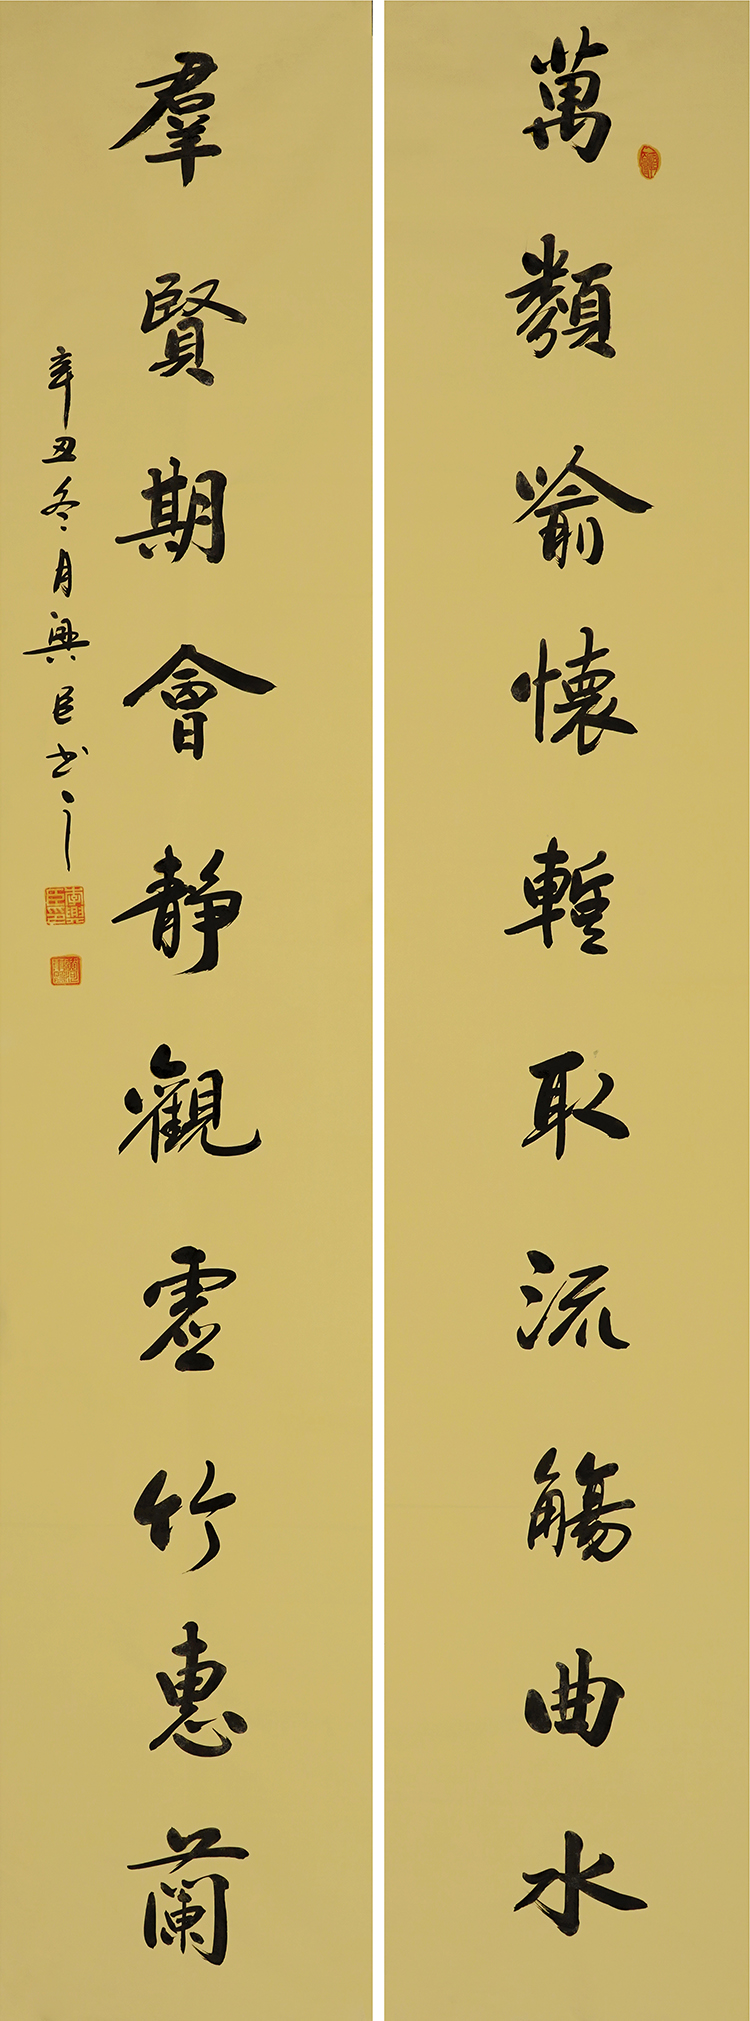 萬類喻懷暫取流觴曲水
羣賢期會静觀虛竹惠蘭
辛丑冬月興臣书之